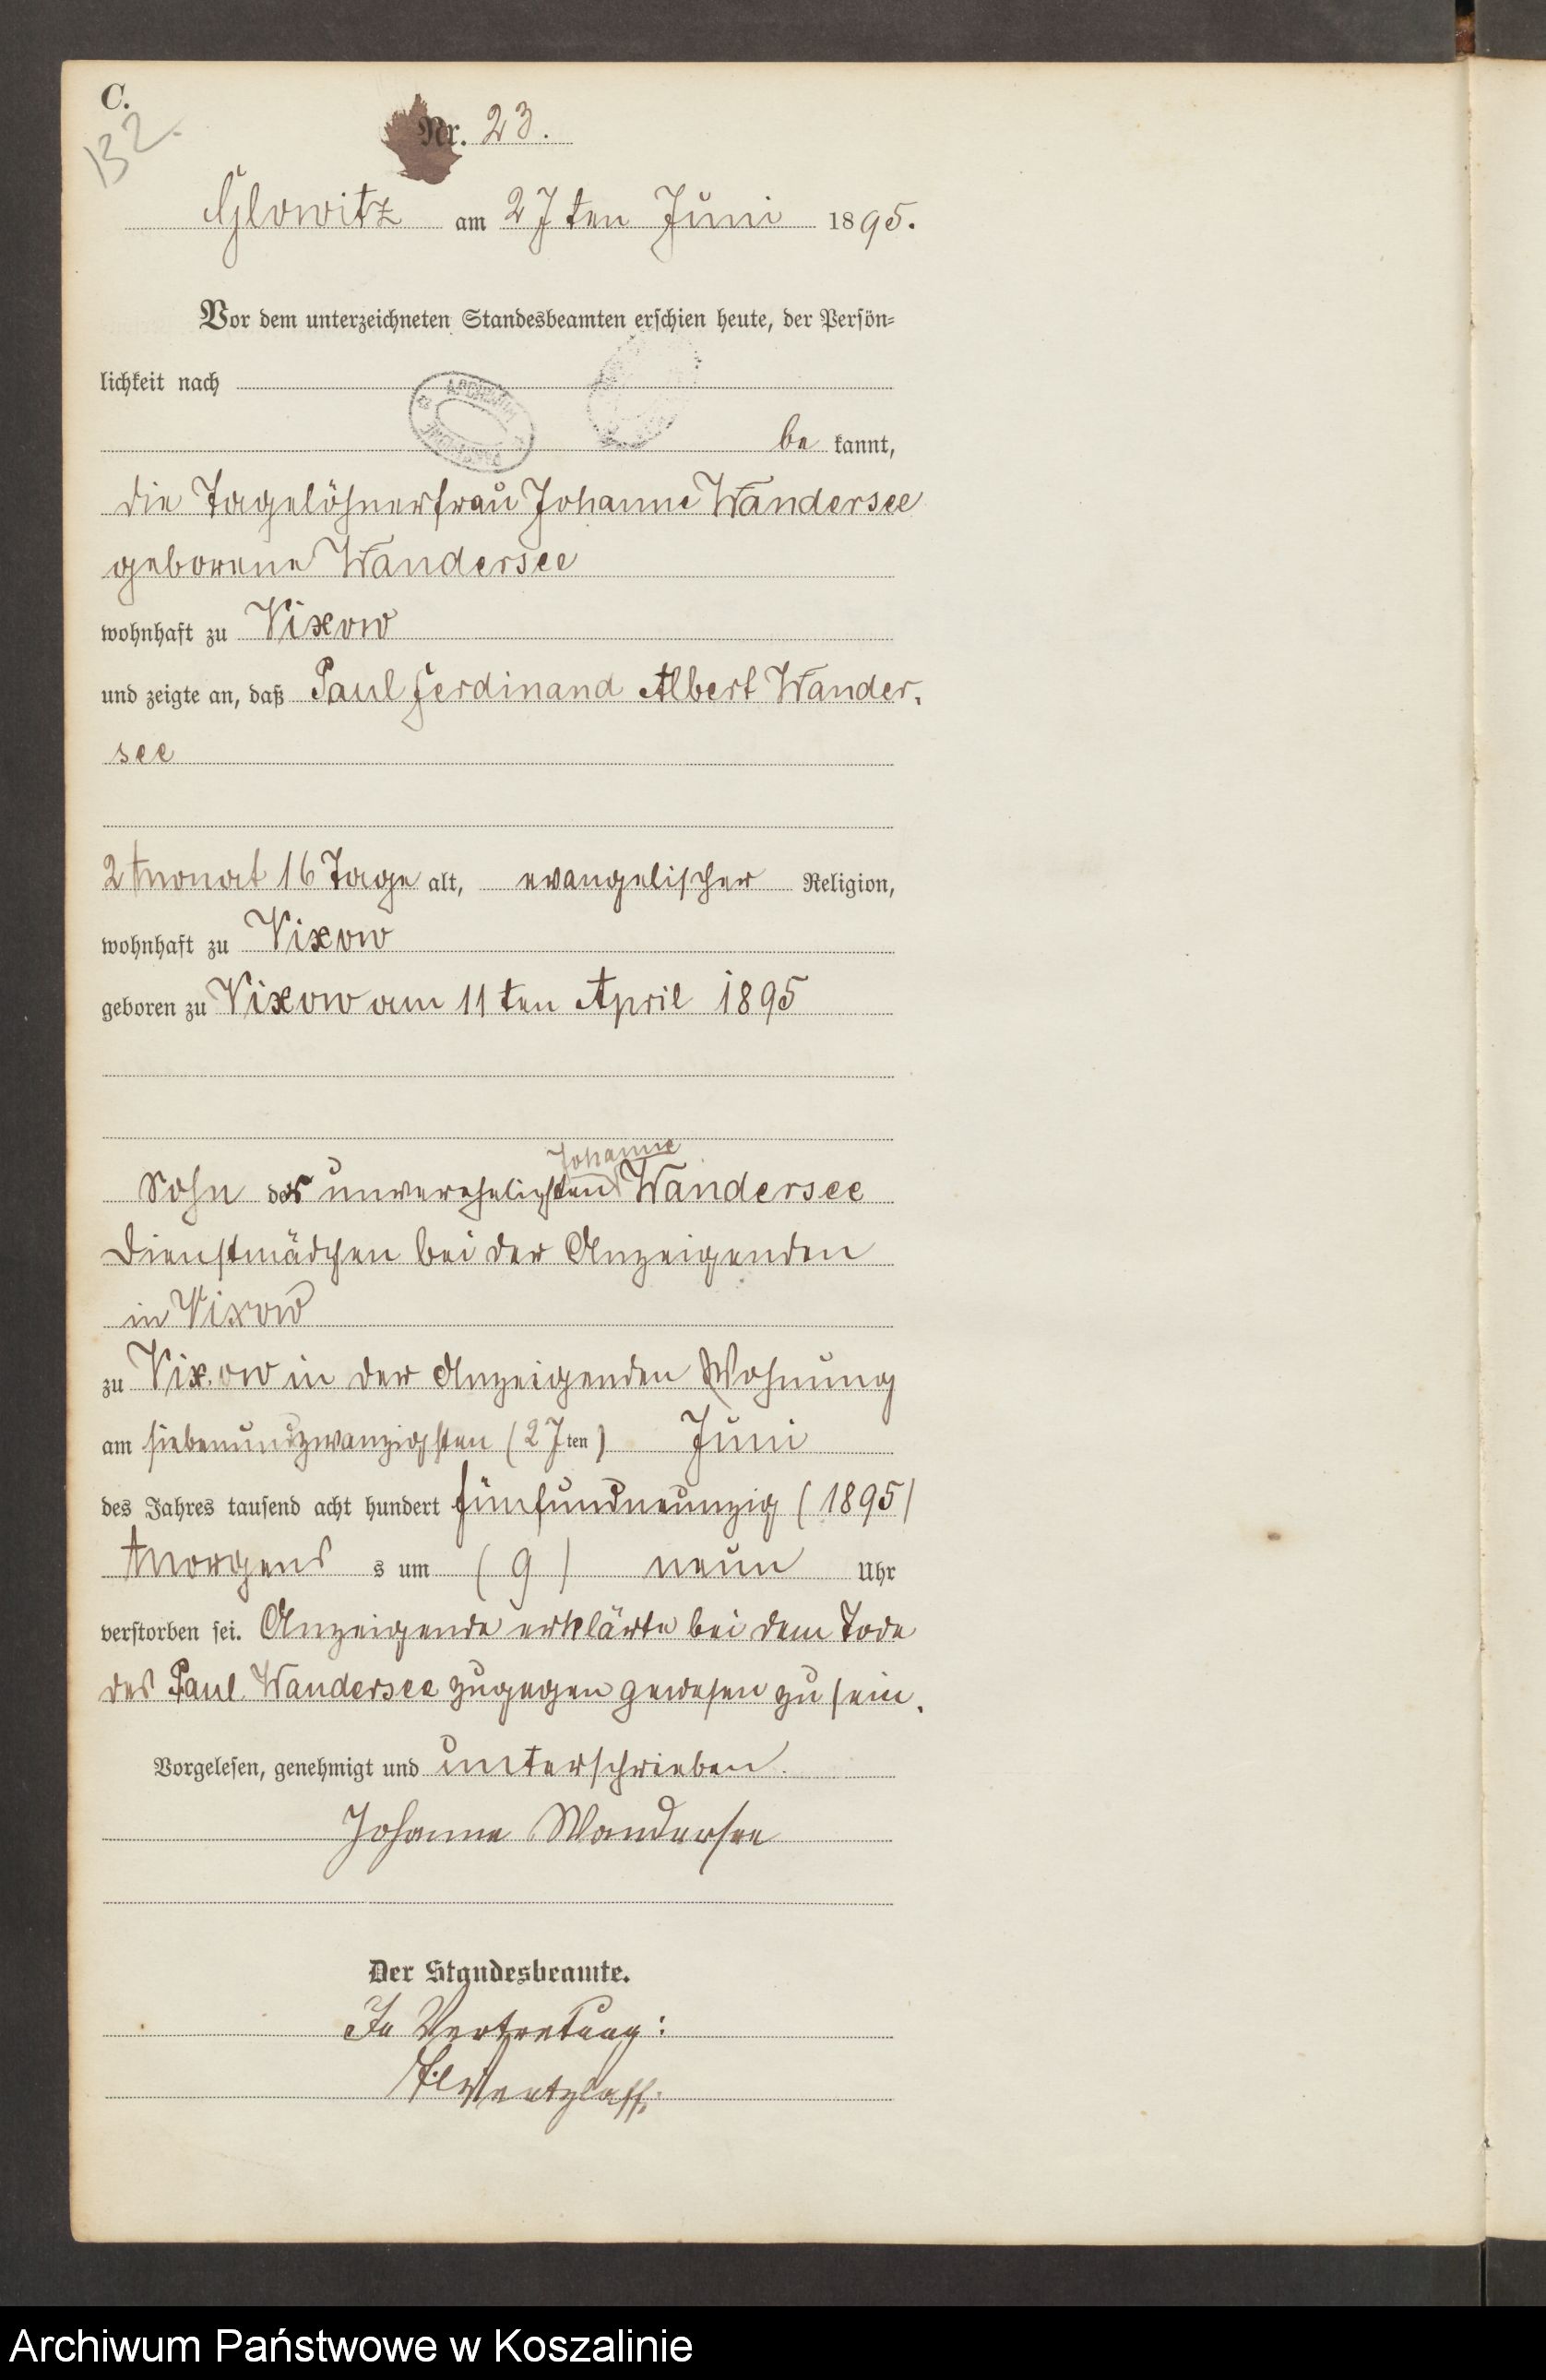 C.
132.
Nr. 23.
Glowitz am 27ten Juni 1895.
Vor dem unterzeichneten Standesbeamten erschien heute, der Persön-
lichkeit nach
be kannt,
die Tagelöhnerfrau Johanne Wandersee
geborene Wandersee
wohnhaft zu Vixow
und zeigte an, daß Paul Ferdinand Albert Wander-
see
2 Monat 16 Tage alt, evangelischer Religion,
wohnhaft zu Vixow
geboren zu Vixow am 11ten April 1895
Johanne
Sohn der unverehelichten Wandersee
Dienstmädchen bei der Anzeigenden
in Vixow
zu Vixow in der Anzeigenden Wohnung
am siebenundzwanzigsten (27ten) Juni
des Jahres tausend acht hundert fünfundneunzig (1895)
Morgens s um (9) neun Uhr
verstorben sei. Anzeigende erklärte bei dem Tode
des Paul Wandersee zugegen gewesen zu sein.
Vorgelesen, genehmigt und unterschrieben.
Johanne Wandersee
Der Standesbeamte.
In Vertretung:
Wentzlaff.
Archiwum Państwowe w Koszalinie